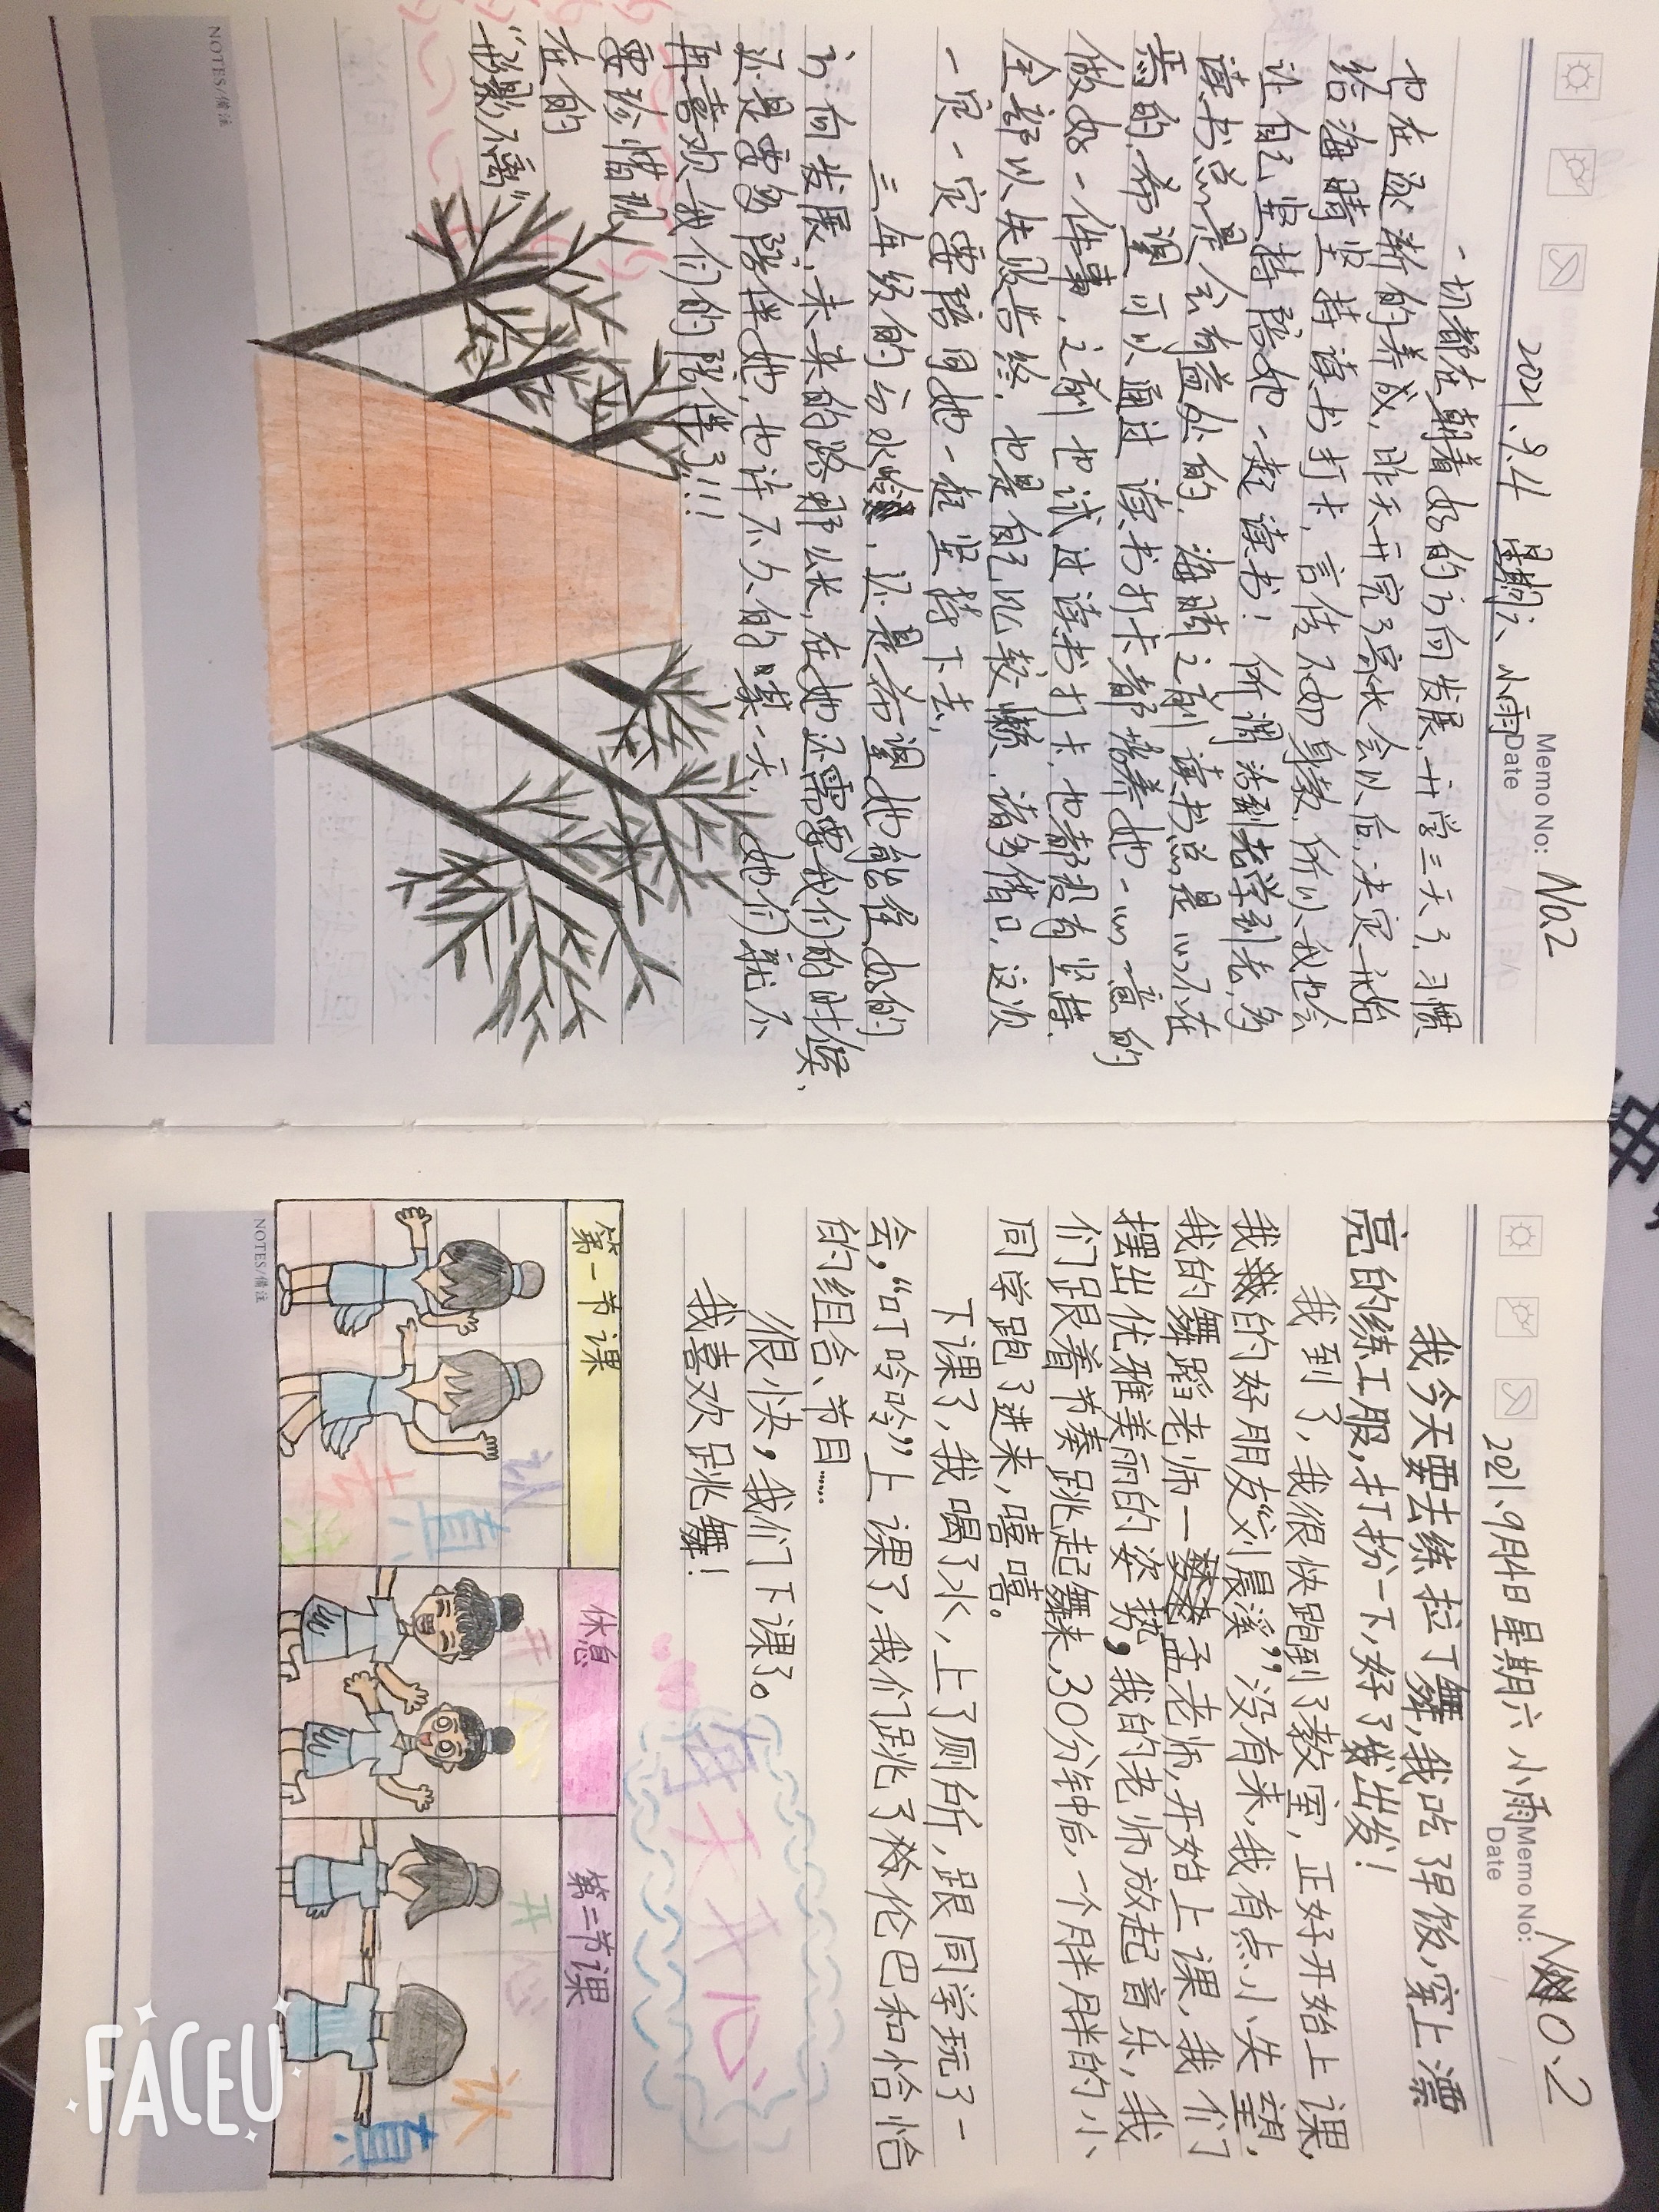 Memo No: No.2
Date
2021.9.4 星期六 小雨
一切都在朝着好的方向发展,开学三天了,习惯
也在逐渐的养成,昨天开完了家长会以后,决定开始
给海晴坚持读书打卡,言传不如身教,所以我也会
让自己坚持陪她一起读书!所谓活到老学到老,多
读书总是会有益处的,海晴之前读书总是心不在
焉的,希望可以通过读书打卡都培养她一心一意的
做好一件事,之前也试过读书打卡,也都没有坚持
全部以失败告终,也是自己比较懒,诸多借口,这次
一定一定要陪同她一起坚持下去,
三年级的分水岭,还是希望她能往好的
方向发展,未来的路那么长,在她还需要我们的时候,
还是要多陪伴她,也许不久的某一天,她们就不
再喜欢我们的陪伴了!!!
要珍惜现
在的
“形影不离”
NOTES/备注
Memo No: No.2
Date
2021.9月4日 星期六 小雨
我今天要去练拉丁舞,我吃了早饭,穿上漂
亮的练工服,打扮一下,好了出发!
我到了,我很快跑到了教室,正好开始上课,
我的好朋友“刘晨溪”没有来,我有点小失望,
我的舞蹈老师—孟老师,开始上课,我们
摆出优雅美丽的姿势,我的老师放起音乐,我
们跟着节奏跳起舞来,30分钟后,一个胖胖的小
同学跑了进来,嘻嘻。
下课了,我喝了水,上了厕所,跟同学玩了一
会,“叮呤呤”上课了,我们跳了伦巴和恰恰
的组合、节目……
很快,我们下课了。
我喜欢跳舞!
每天开心
第一节课
休息
第二节课
认
真
开
心
开
心
认
真
NOTES/备注
FACEU